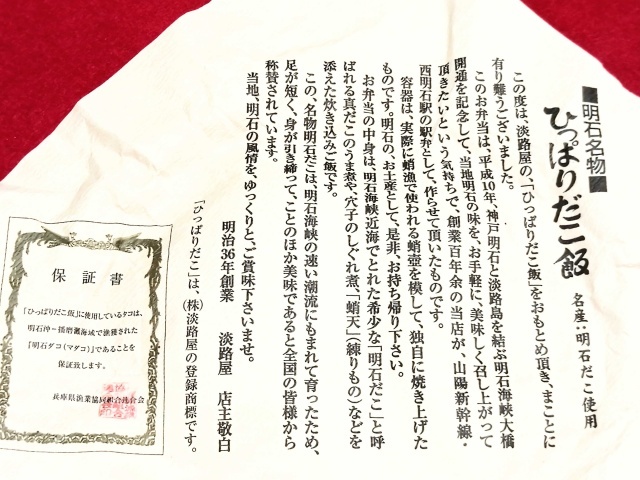 ■明石名物■
ひっぱりだこ飯
名産:明石だこ使用
この度は、淡路屋の、「ひっぱりだこ飯」をおもとめ頂き、まことに
有り難うございました。
このお弁当は、平成10年、神戸明石と淡路島を結ぶ明石海峡大橋
開通を記念して、当地明石の味を、お手軽に、美味しく召し上がって
頂きたいという気持ちで、創業百年余の当店が、山陽新幹線・
西明石駅の駅弁として、作らせて頂いたものです。
容器は、実際に蛸漁で使われる蛸壺を模して、独自に焼き上げた
ものです。明石の、お土産として、是非、お持ち帰り下さい。
お弁当の中身は、明石海峡近海でとれた希少な「明石だこ」と呼
ばれる真だこのうま煮や、穴子のしぐれ煮、「蛸天」(練りもの)などを
添えた炊き込みご飯です。
この、名物明石だこは、明石海峡の速い潮流にもまれて育ったため、
足が短く、身が引き締って、ことのほか美味であると全国の皆様から
称賛されています。
当地、明石の風情を、ゆっくりと、ご賞味下さいませ。
明治36年創業 淡路屋 店主敬白
「ひっぱりだこ」は、(株)淡路屋の登録商標です。
保証書
「ひっぱりだこ飯」に使用しているタコは、
明石沖〜播磨灘海域で漁獲された
「明石ダコ(マダコ)」であることを
保証致します。
兵庫県漁業協同組合連合会